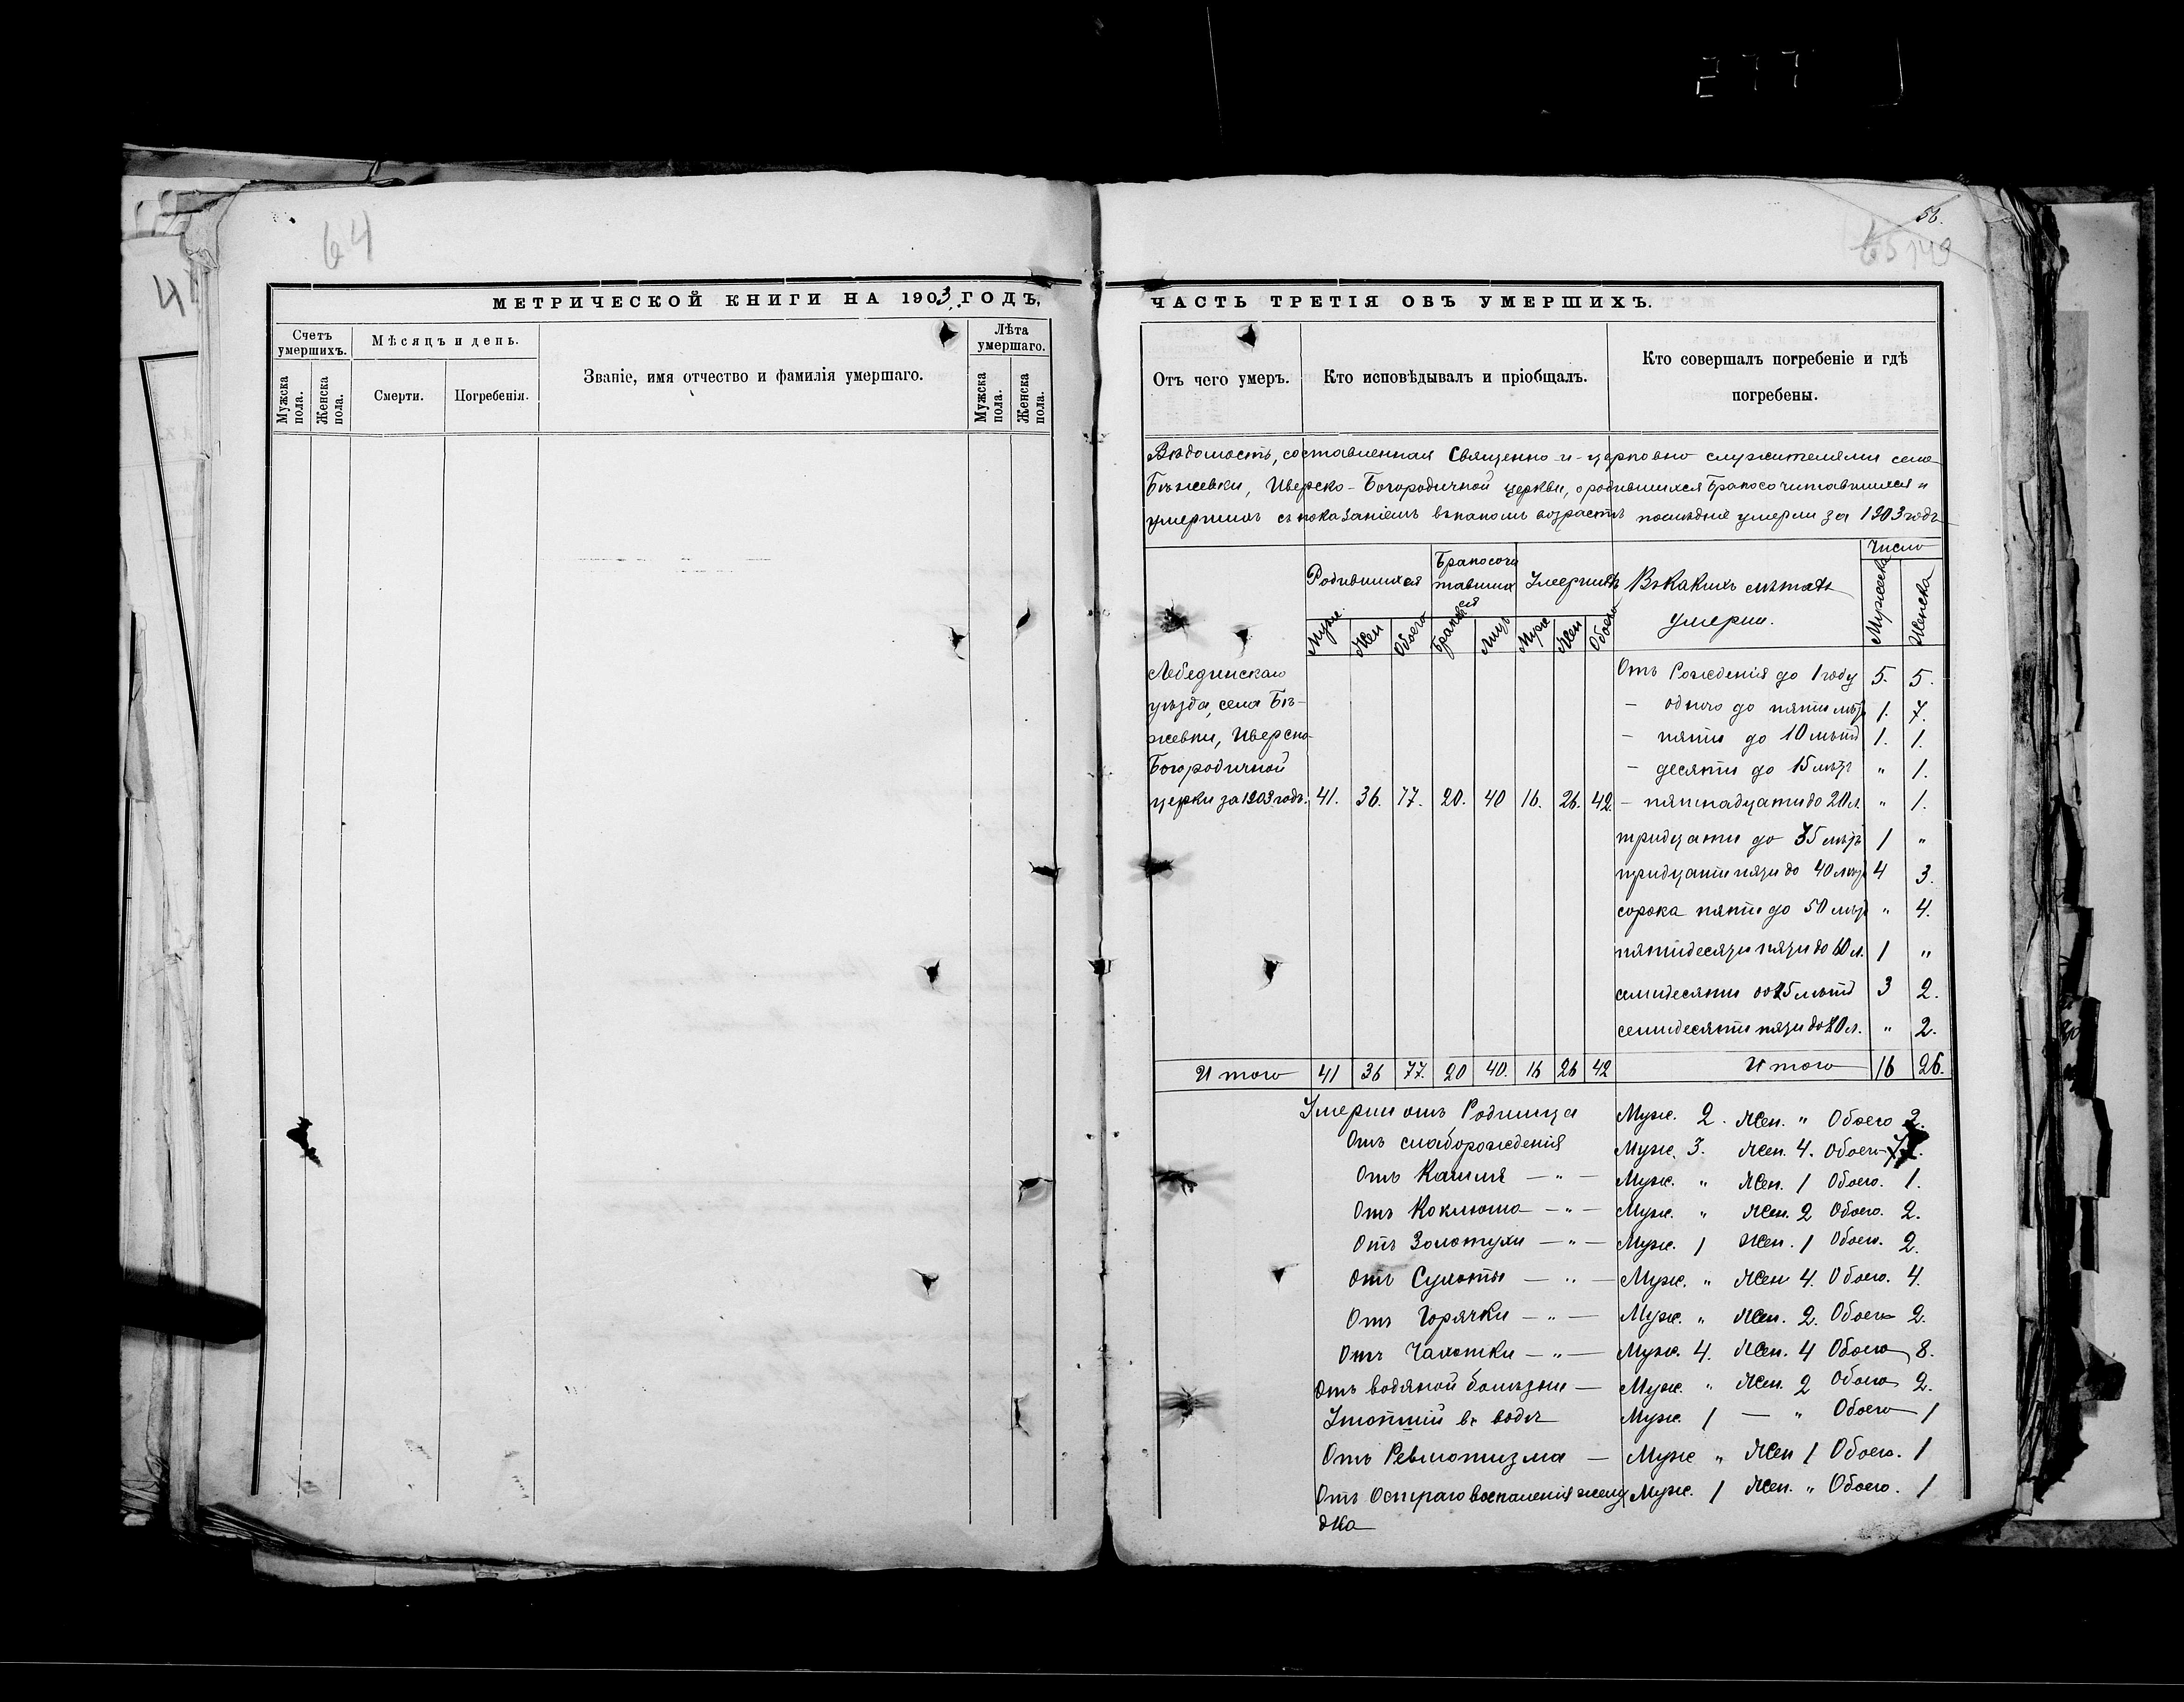 277
64
МЕТРИЧЕСКОЙ КНИГИ НА 1903 ГОДЪ,
Счетъ умершихъ.
Мужска пола.
Женска пола.
Мѣсяцъ и день.
Смерти.
Погребенія.
Званіе, имя отчество и фамилія умершаго.
Лѣта умершаго.
Мужска пола.
Женска пола.
56.
65 149
ЧАСТЬ ТРЕТІЯ ОБЪ УМЕРШИХЪ.
Отъ чего умеръ.
Кто исповѣдывалъ и пріобщалъ.
Кто совершалъ погребеніе и гдѣ погребены.
Вѣдомость, составленная Священно-и-церковно служителями села
Бѣжевки, Иверско-Богородичной церкви, о родившихся Бракосочитавшихся и
умершихъ съ показаніемъ въ какомъ возрастѣ послѣдніе умерли за 1903 годъ
Родившихся
Бракосочитавшихся
Умершихъ
Въ какихъ лѣтахъ умерли.
Число
Муж Жен Обоего Браковъ Лицъ Муж Жен Обоего Мужска Женска
Лебединскаго
уѣзда, села Бѣ-
жевки, Иверско-
Богородичной
церкви за 1903 годъ. 41. 36. 77. 20. 40 16. 26. 42.
Отъ Рожденія до 1 году 5. 5.
— одного до пяти лѣтъ 1. 7.
— пяти до 10 лѣтъ 1. 1.
— десяти до 15 лѣтъ " 1.
— пятнадцати до 20 л. " 1.
тридцати до 35 лѣтъ 1 "
тридцати пяти до 40 лѣтъ 4 3.
сорока пяти до 50 лѣтъ " 4.
пятидесяти пяти до 60 л. 1 "
семидесяти до 75 лѣтъ 3 2.
семидесяти пяти до 80 л. " 2.
Итого 41 36 77. 20 40. 16 26 42 Итого 16 26.
Умерли отъ Родимца Муж. 2. Жен. " Обоего 2.
Отъ слаборожденія Муж. 3. Жен. 4. Обоего 7.
Отъ Кашля — " — Муж. " Жен. 1 Обоего. 1.
Отъ Коклюша — " — Муж. " Жен. 2 Обоего. 2.
Отъ Золотухи — " — Муж. 1 Жен. 1 Обоего. 2.
Отъ Сухоты — " — Муж. " Жен 4. Обоего. 4.
Отъ Горячки — " — Муж. " Жен. 2. Обоего 2.
Отъ Чахотки — " — Муж. 4. Жен. 4 Обоего 8.
Отъ водяной болѣзни — Муж. " Жен. 2 Обоего 2.
Утопшій въ водѣ Муж. 1 — " Обоего 1
Отъ Ревматизма — Муж " Жен 1 Обоего. 1
Отъ Остраго воспаленія желу Муж. 1 Жен. " Обоего. 1
дка